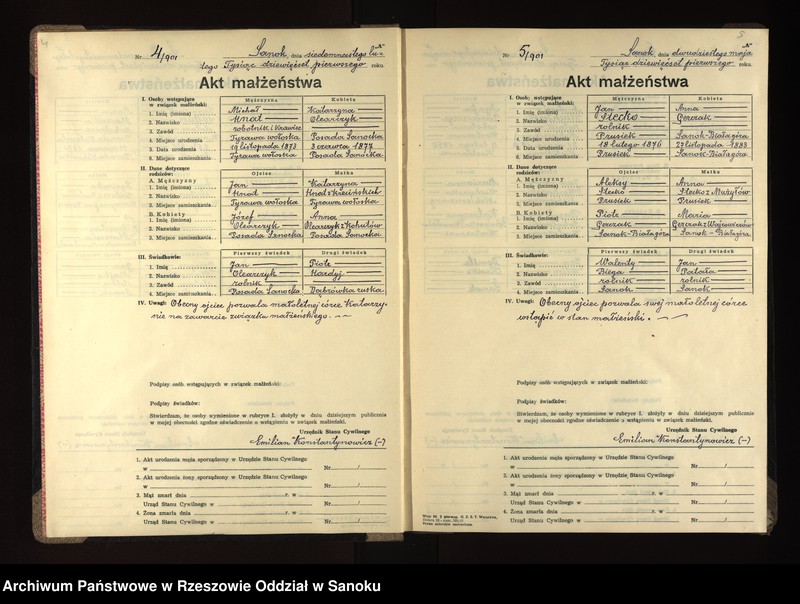 Nr. 4/901 Sanok, dnia siedemnastego lu-
tego Tysiąc dziewięćset pierwszego roku.
Akt małżeństwa
I. Osoby wstępujące w związek małżeński: Mężczyzna Kobieta
1. Imię (imiona) Michał Katarzyna
2. Nazwisko Hnat Olearczyk
3. Zawód robotnik i krawiec
4. Miejsce urodzenia Tyrawa wołoska Posada Sanocka
5. Data urodzenia 19 listopada 1873 3 czerwca 1877
6. Miejsce zamieszkania Tyrawa wołoska Posada Sanocka
II. Dane dotyczące rodziców: Ojciec Matka
A. Mężczyzny
1. Imię (imiona) Jan Katarzyna
2. Nazwisko Hnat Hnat
3. Miejsce zamieszkania Tyrawa wołoska Tyrawa wołoska
B. Kobiety
1. Imię (imiona) Józef Anna
2. Nazwisko Olearczyk Olearczyk z
3. Miejsce zamieszkania Posada Sanocka Posada Sanocka
III. Świadkowie: Pierwszy świadek Drugi świadek
1. Imię Jan Piotr
2. Nazwisko Olearczyk Hardyj
3. Zawód rolnik rolnik
4. Miejsce zamieszkania Posada Sanocka Dąbrówka ruska
IV. Uwagi: Obecny ojciec pozwala małoletniej córce Katarzy-
nie na zawarcie związku małżeńskiego.
Podpisy osób wstępujących w związek małżeński:
Podpisy świadków:
Stwierdzam, że osoby wymienione w rubryce I. złożyły w dniu dzisiejszym publicznie
w mojej obecności zgodne oświadczenie o wstąpieniu w związek małżeński.
Urzędnik Stanu Cywilnego
Emilian Konstantynowicz (-)
1. Akt urodzenia męża sporządzony w Urzędzie Stanu Cywilnego
w Nr. /
2. Akt urodzenia żony sporządzony w Urzędzie Stanu Cywilnego
w Nr. /
3. Mąż zmarł dnia r. w
Urząd Stanu Cywilnego w Nr. /
4. Żona zmarła dnia r. w
Urząd Stanu Cywilnego w Nr. /
5
Nr. 5/901 Sanok, dnia dwudziestego maja
Tysiąc dziewięćset pierwszego roku.
Akt małżeństwa
I. Osoby wstępujące w związek małżeński: Mężczyzna Kobieta
1. Imię (imiona) Jan Anna
2. Nazwisko Stecko
3. Zawód rolnik
4. Miejsce urodzenia Prusiek Sanok-Białagóra
5. Data urodzenia 18 lutego 1876 27 listopada 1883
6. Miejsce zamieszkania Prusiek Sanok-Białagóra
II. Dane dotyczące rodziców: Ojciec Matka
A. Mężczyzny
1. Imię (imiona) Aleksy Anna
2. Nazwisko Stecko Stecko z
3. Miejsce zamieszkania Prusiek Prusiek
B. Kobiety
1. Imię (imiona) Piotr Maria
2. Nazwisko
3. Miejsce zamieszkania Sanok-Białagóra Sanok-Białagóra
III. Świadkowie: Pierwszy świadek Drugi świadek
1. Imię Walenty Jan
2. Nazwisko Biega Patała
3. Zawód rolnik rolnik
4. Miejsce zamieszkania Sanok Sanok
IV. Uwagi: Obecny ojciec pozwala swej małoletniej córce
wstąpić w stan małżeński.
Podpisy osób wstępujących w związek małżeński:
Podpisy świadków:
Stwierdzam, że osoby wymienione w rubryce I. złożyły w dniu dzisiejszym publicznie
w mojej obecności zgodne oświadczenie o wstąpieniu w związek małżeński.
Urzędnik Stanu Cywilnego
Emilian Konstantynowicz (-)
1. Akt urodzenia męża sporządzony w Urzędzie Stanu Cywilnego
w Nr. /
2. Akt urodzenia żony sporządzony w Urzędzie Stanu Cywilnego
w Nr. /
3. Mąż zmarł dnia r. w
Urząd Stanu Cywilnego w Nr. /
4. Żona zmarła dnia r. w
Urząd Stanu Cywilnego w Nr. /
Archiwum Państwowe w Rzeszowie Oddział w Sanoku